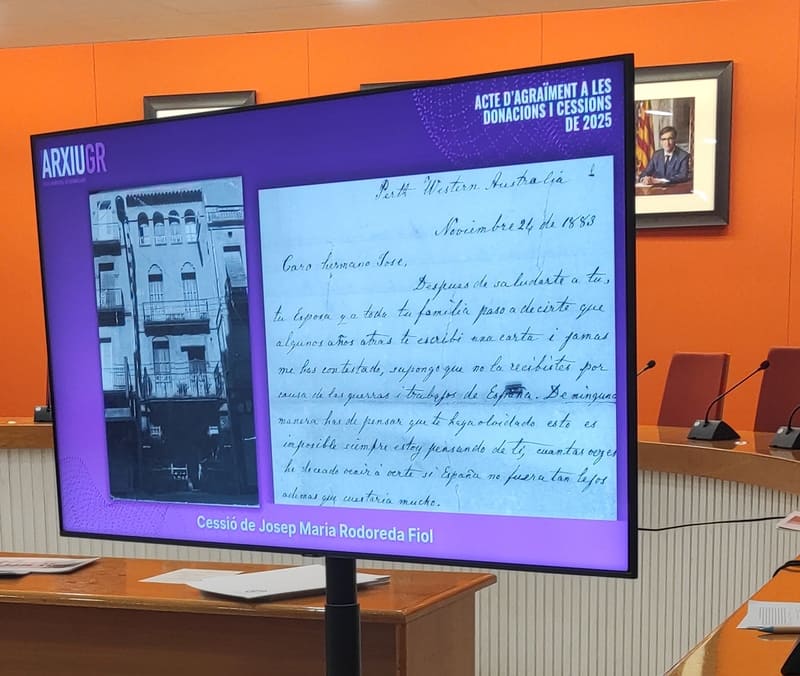 ARXIUGR
ACTE D'AGRAÏMENT A LES
DONACIONS I CESSIONS
DE 2025
Perth Western Australia 1
Noviembre 24 de 1883
Caro hermano Jose,
Despues de saludarte a tu,
tu Esposa y a toda tu familia paso a decirte que
algunos años atras te escribi una carta i jamas
me has contestado, supongo que no la recibistes por
causa de las guerras i trabajos de España. De ninguna
manera has de pensar que te haya olvidado esto es
imposible siempre estoy pensando de ti, cuantas vezes
he deceado venir á verte si España no fuera tan lejos
ademas que custaria mucho.
Cessió de Josep Maria Rodoreda Fiol